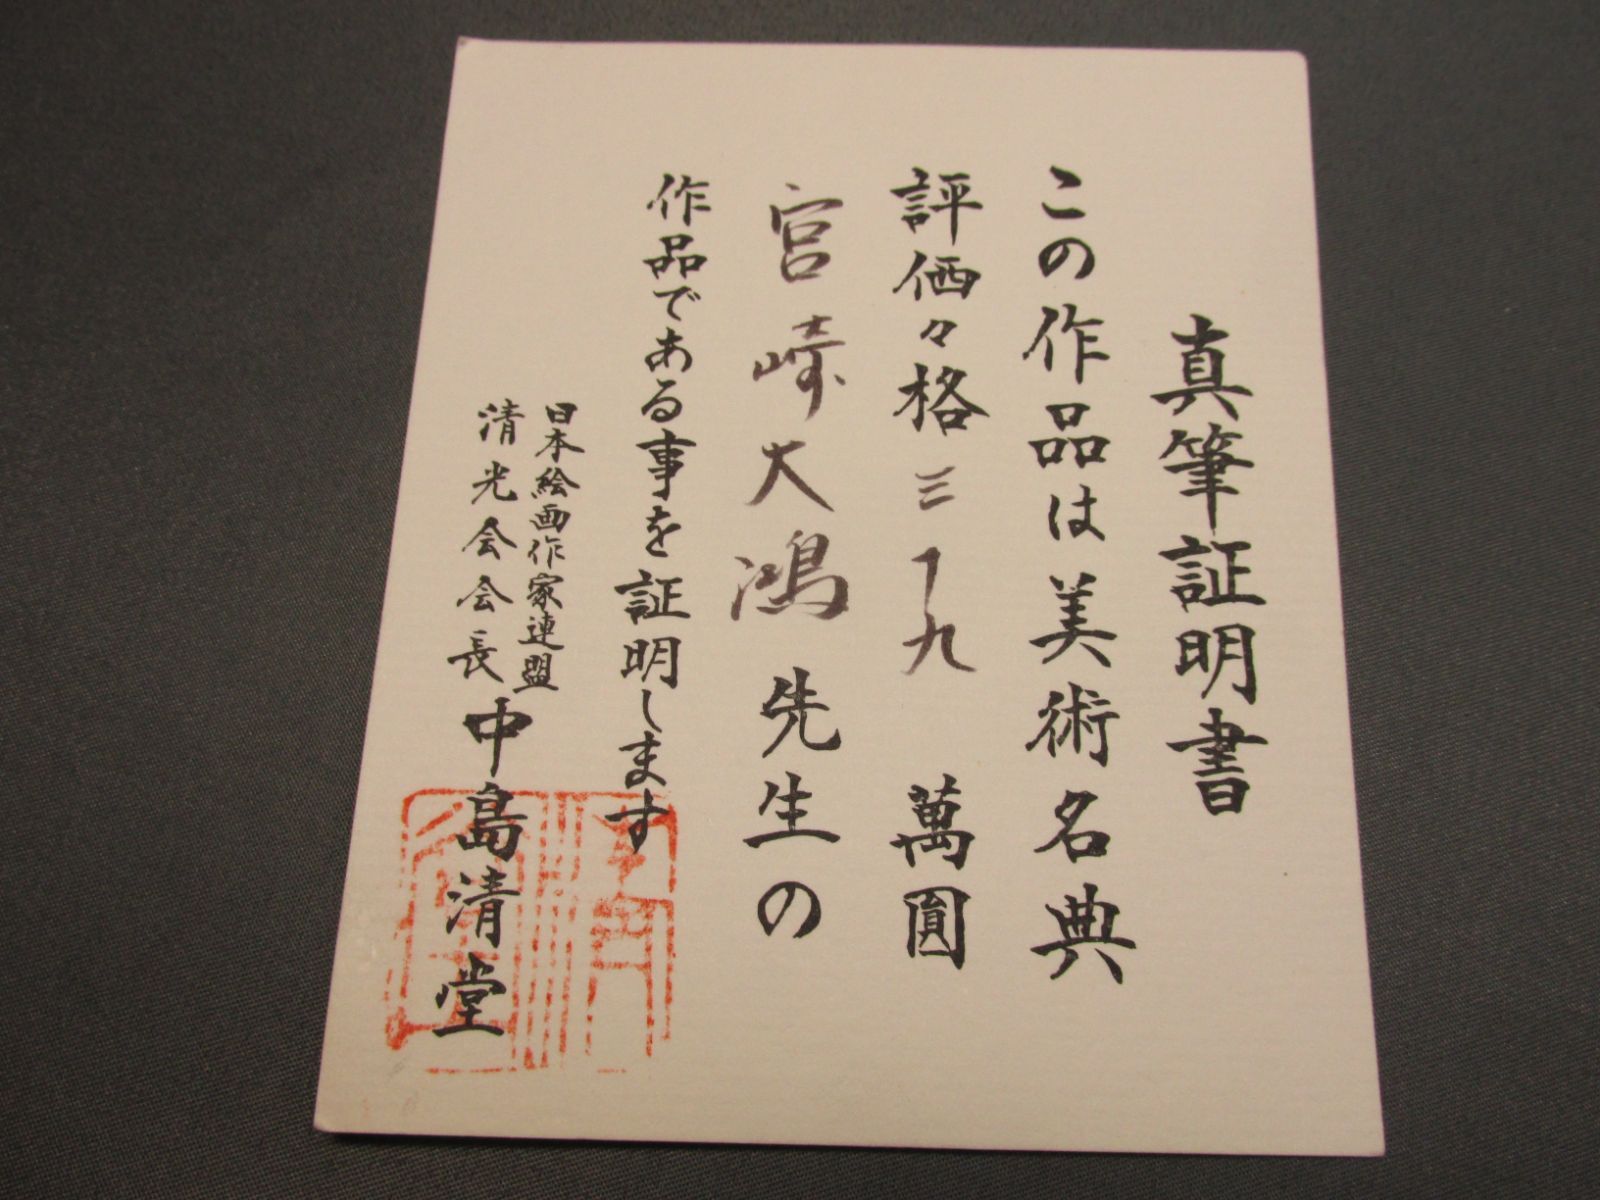 真筆証明書
この作品は美術名典
評価々格三十九萬圓
宮崎大鴻先生の
作品である事を証明します
日本絵画作家連盟
清光会会長中島清堂